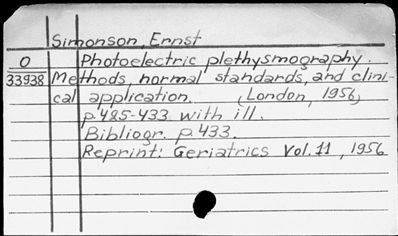 Simonson, Ernst
O Photoelectric plethysmography.
33938 Methods, normal standards, and clini-
cal application. (London, 1956)
p.425-433 with ill.
Bibliogr. p.433.
Reprint: Geriatrics Vol. 11, 1956